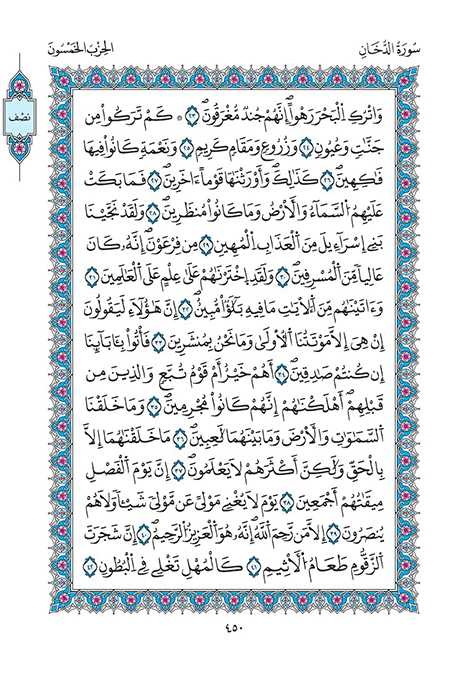 سُورَةُ الدُّخَانِ
الحِزْبُ الخَمْسُونَ
نصْف
وَاتْرُكِ اِ۬لْبَحْرَ رَهْواً اِنَّهُمْ جُندٞ مُّغْرَقُونَۖ ٢٣ * كَمْ تَرَكُواْ مِن
جَنَّٰتٖ وَعُيُونٖ ٢٤ وَزُرُوعٖ وَمَقَامٖ كَرِيمٖ ٢٥ وَنَعْمَةٖ كَانُواْ فِيهَا
فَٰكِهِينَۖ ٢٦ كَذَٰلِكَۖ وَأَوْرَثْنَٰهَا قَوْماً اٰخَرِينَۖ ٢٧ فَمَا بَكَتْ
عَلَيْهِمُ اُ۬لسَّمَآءُ وَالَارْضُ وَمَا كَانُواْ مُنظَرِينَۖ ٢٨ وَلَقَدْ نَجَّيْنَا
بَنِےٓ إِسْرَآءِيلَ مِنَ اَ۬لْعَذَابِ اِ۬لْمُهِينِ ٢٩ مِن فِرْعَوْنَۖ إِنَّهُۥ كَانَ
عَالِياٗ مِّنَ اَ۬لْمُسْرِفِينَۖ ٣٠ وَلَقَدِ اِ۪خْتَرْنَٰهُمْ عَلَىٰ عِلْمٍ عَلَى اَ۬لْعَٰلَمِينَۖ ٣١
وَءَاتَيْنَٰهُم مِّنَ اَ۬لَايَٰتِ مَا فِيهِ بَلَٰٓؤٞاْ مُّبِينٌۖ ٣٢ اِنَّ هَٰٓؤُلَآءِ لَيَقُولُونَ
إِنْ هِيَ إِلَّا مَوْتَتُنَا اَ۬لُاولَىٰ وَمَا نَحْنُ بِمُنشَرِينَۖ ٣٣ فَاتُواْ بِـَٔابَآئِنَآ
إِن كُنتُمْ صَٰدِقِينَۖ ٣٤ أَهُمْ خَيْرٌ اَمْ قَوْمُ تُبَّعٖ وَالذِينَ مِن
قَبْلِهِمُۥٓ أَهْلَكْنَٰهُمُۥٓ إِنَّهُمْ كَانُواْ مُجْرِمِينَۖ ٣٥ وَمَا خَلَقْنَا
اَ۬لسَّمَٰوَٰتِ وَالَارْضَ وَمَا بَيْنَهُمَا لَٰعِبِينَۖ ٣٦ مَا خَلَقْنَٰهُمَآ إِلَّا
بِالْحَقِّۖ وَلَٰكِنَّ أَكْثَرَهُمْ لَا يَعْلَمُونَۖ ٣٧ إِنَّ يَوْمَ اَ۬لْفَصْلِ
مِيقَٰتُهُمُۥٓ أَجْمَعِينَ ٣٨ يَوْمَ لَا يُغْنِے مَوْلىً عَن مَّوْلىٗ شَيْـٔاٗ وَلَا هُمْ
يُنصَرُونَ ٣٩ إِلَّا مَن رَّحِمَ اَ۬للَّهُۖ إِنَّهُۥ هُوَ اَ۬لْعَزِيزُ اُ۬لرَّحِيمُۖ ٤٠ إِنَّ شَجَرَتَ
اَ۬لزَّقُّومِ طَعَامُ اُ۬لَاثِيمِ ٤١ كَالْمُهْلِ تَغْلِے فِے اِ۬لْبُطُونِ ٤٢
٤٥٠